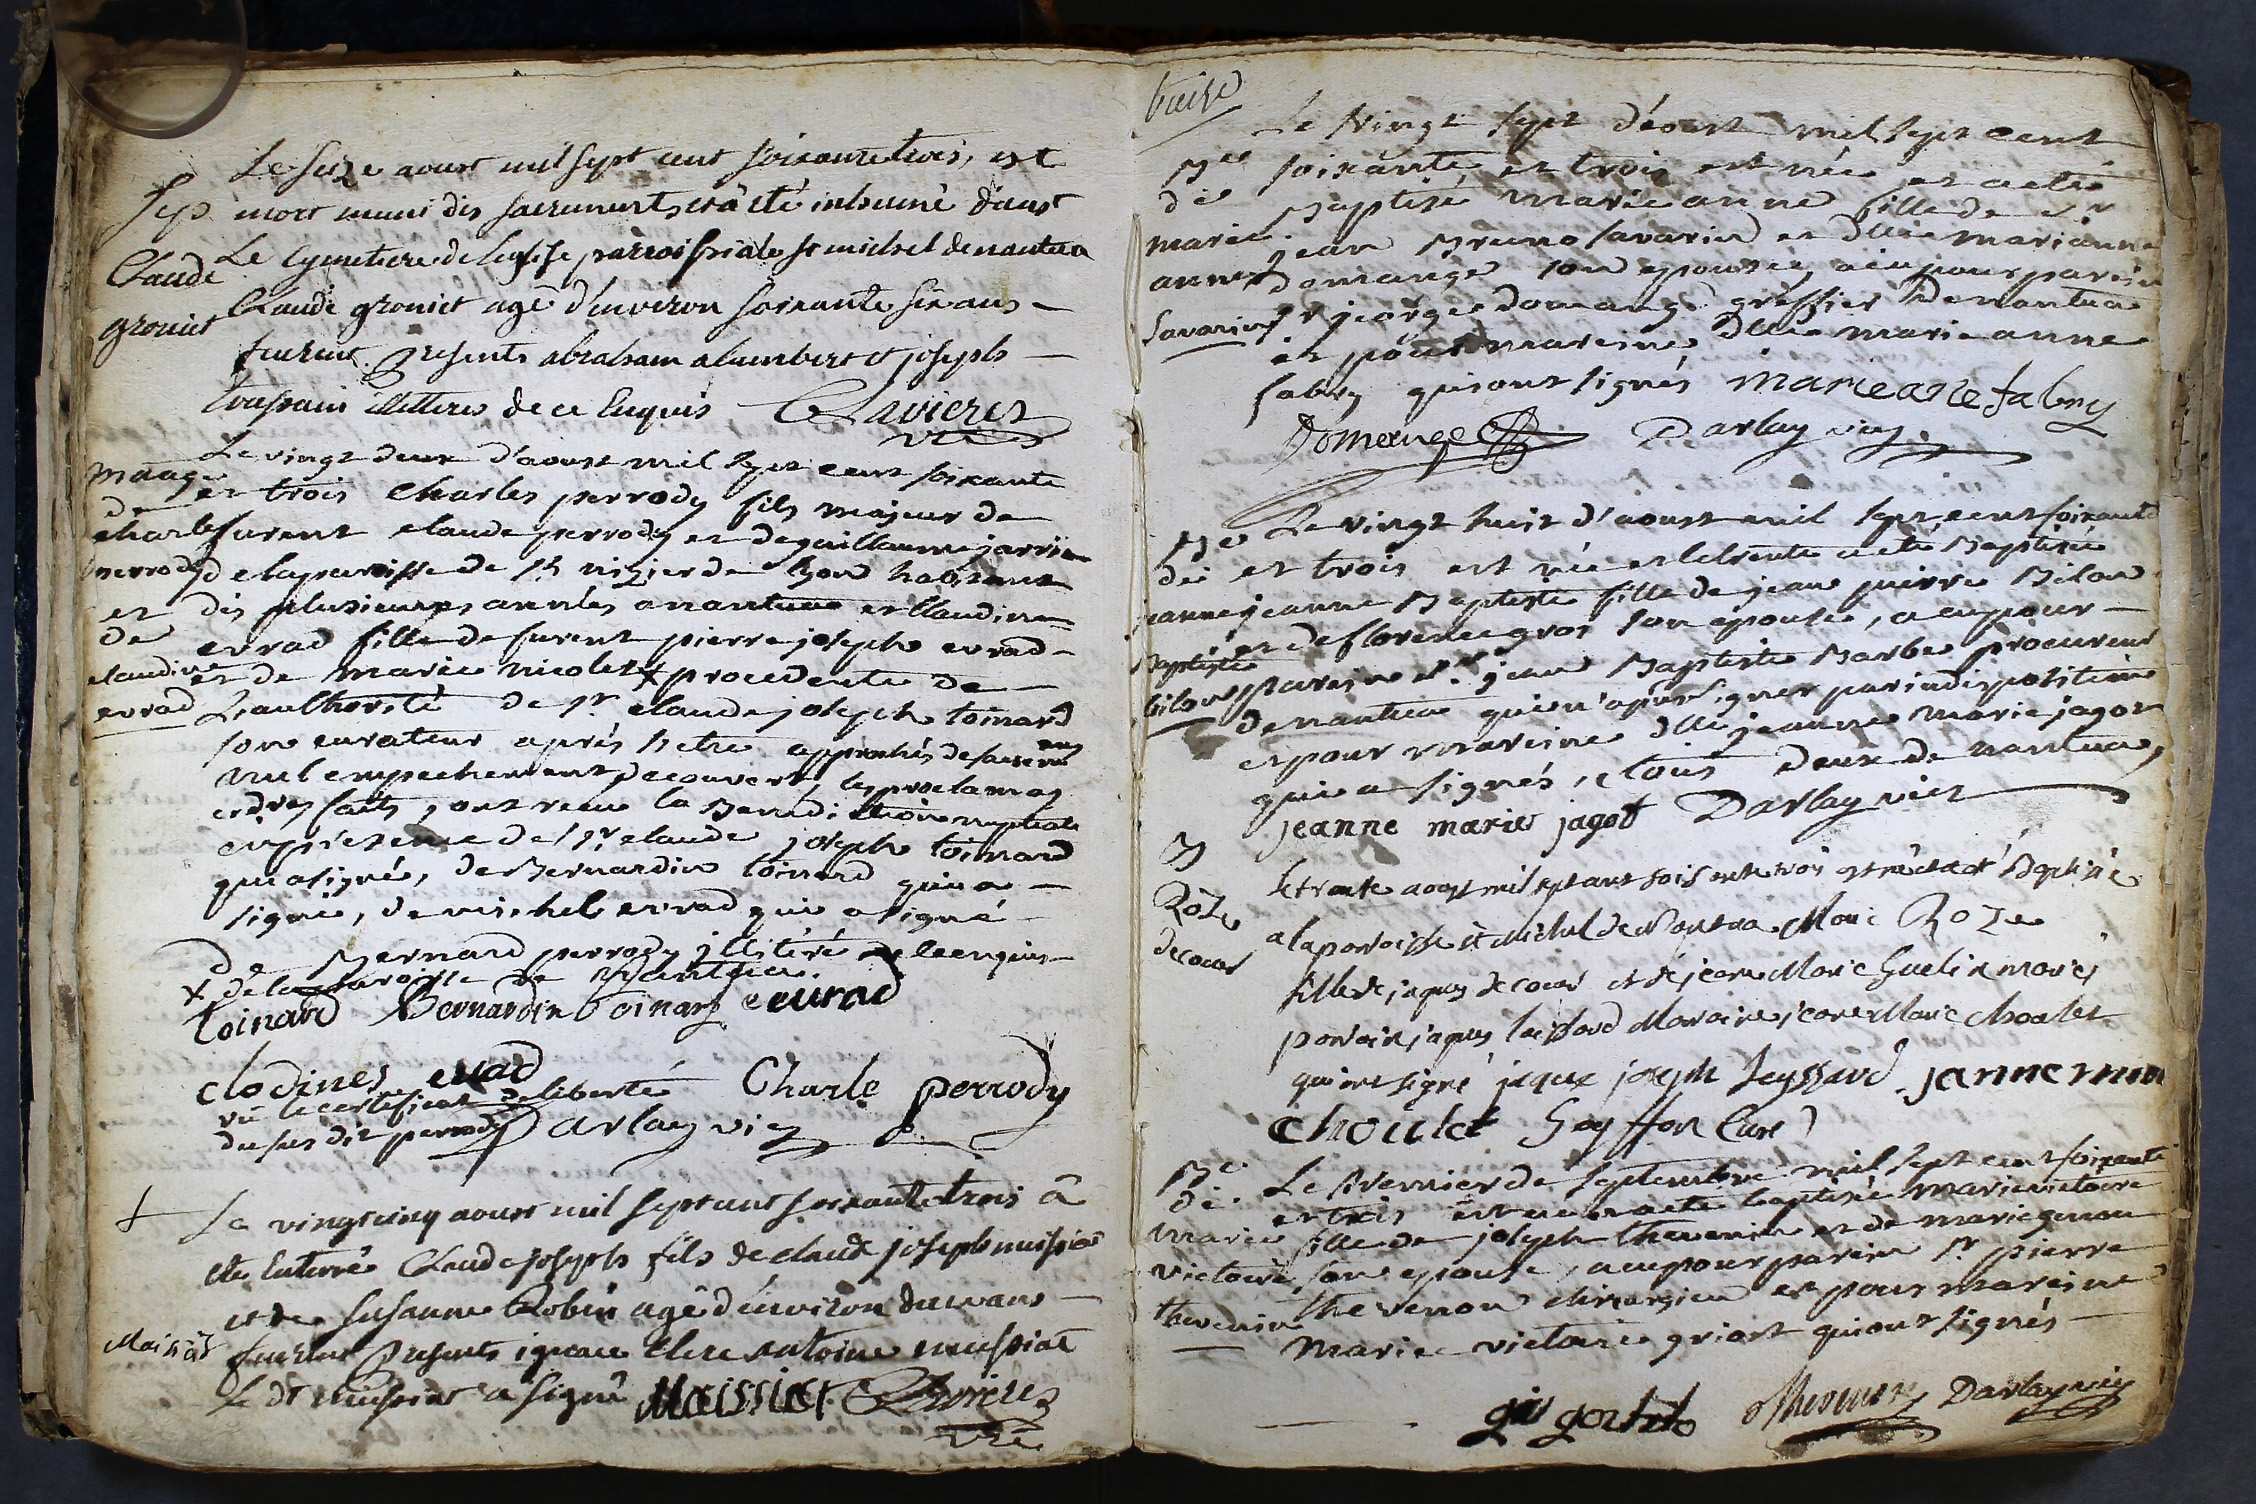 Le seize aoust mil sept cent soixante trois, est
Sep mort muni des sacrements et a été inhumé dans
Le Cymetiere de l'eglise parroissiale st michel de nantua
Claude
Claude groniet agé d'environ soixante six ans
groniet
furent presents abraham alumbert et joseph
toussain illetteres de ce enquis Clavieres
vic
Le vingt deux d'aoust mil sept cent soixante
Mariage et trois Charles perrody fils majeur de
de
charles furent claude perrody et de guillaume jarrin
perrody de la paroisse de st nizier de lyon habitant
et dès plusieurs années a nantua et Claudine
de evrad fille de furent pierre joseph evrad
claudine et de marie nicolet + procedente de
evrad L'authorité de sr claude joseph toinard
son curateur après s'etre approchés des sacrements
nul empechement decouvert, les proclamations
et dres faits, ont recu la Benediction nuptiale
en presence de sr claude joseph toinard
qui a signé, de Bernardin toinard qui a
signé, de michel evrad qui a signé
De Bernard perrody illitéré de ce enquis
+ de la paroisse de Nantua.
toinard Bernardin toinard evrad
clodines evrad
vu le certificat de liberté Charle perrody
du sus dit perrody Darlay vic
+ Le vingt cinq aoust mil sept cent soixante trois a
eté enterré Claude joseph fils de claude joseph maissiat
et de susanne Robin agé d'environ deux ans
Maissiat furent presents ignace Clerc antoine maissiat
Le dt maissiat a signé Maissiat Clavieres
vic
treize
Le Vingt sept d'éoust mil sept cent
Bme soixante et trois est née et a eté
de Baptisé marie anne fille de sr
marie jean Bruno savarin et dlle marianne
anne domange son epouse, a eu pour parein
Savarin sr george domange greffier de nantua
et pour mareine dlle marie anne
fabry qui ont signés marie anne fabry
Domange Darlay vic
Le vingt huit d'aoust mil sept cent soixante
Bme
de et trois est née et le trente a eté Baptisée
jeanne jeanne Baptiste fille de jean pierre Bilon
Baptiste et de florence gros son epouse, a eu pour
bilon parein sr jean Baptiste Barbe procureur
de nantua qui n'a pu signer par indisposition
et pour mareine dlle jeanne marie jagot
qui a signés, tous deux de nantua,
jeanne marie jagot Darlay vic
B
le trente aoust mil sept cent soissente trois est née et a eté Baptisée
Roze
a la paroisse st Michel de Nantua Marie Roze
decoeur
fille de jaques decoeur et de jeane Marie Guelin mariés
parain jaques Maraine jeane Marie choulet
qui ont signé jaque joseph janne mari
choulet Goyffon Curé
Bme Le premier de septembre mil sept cent soixante
de et trois est née et a eté baptisée marie victoire
marie fille de joseph thevenin et de marie
victoire son epouse, a eu pour parein sr pierre
thevenin thevenon chirurgien et pour mareine
marie victoire griort qui ont signés
thevenon Darlay vic